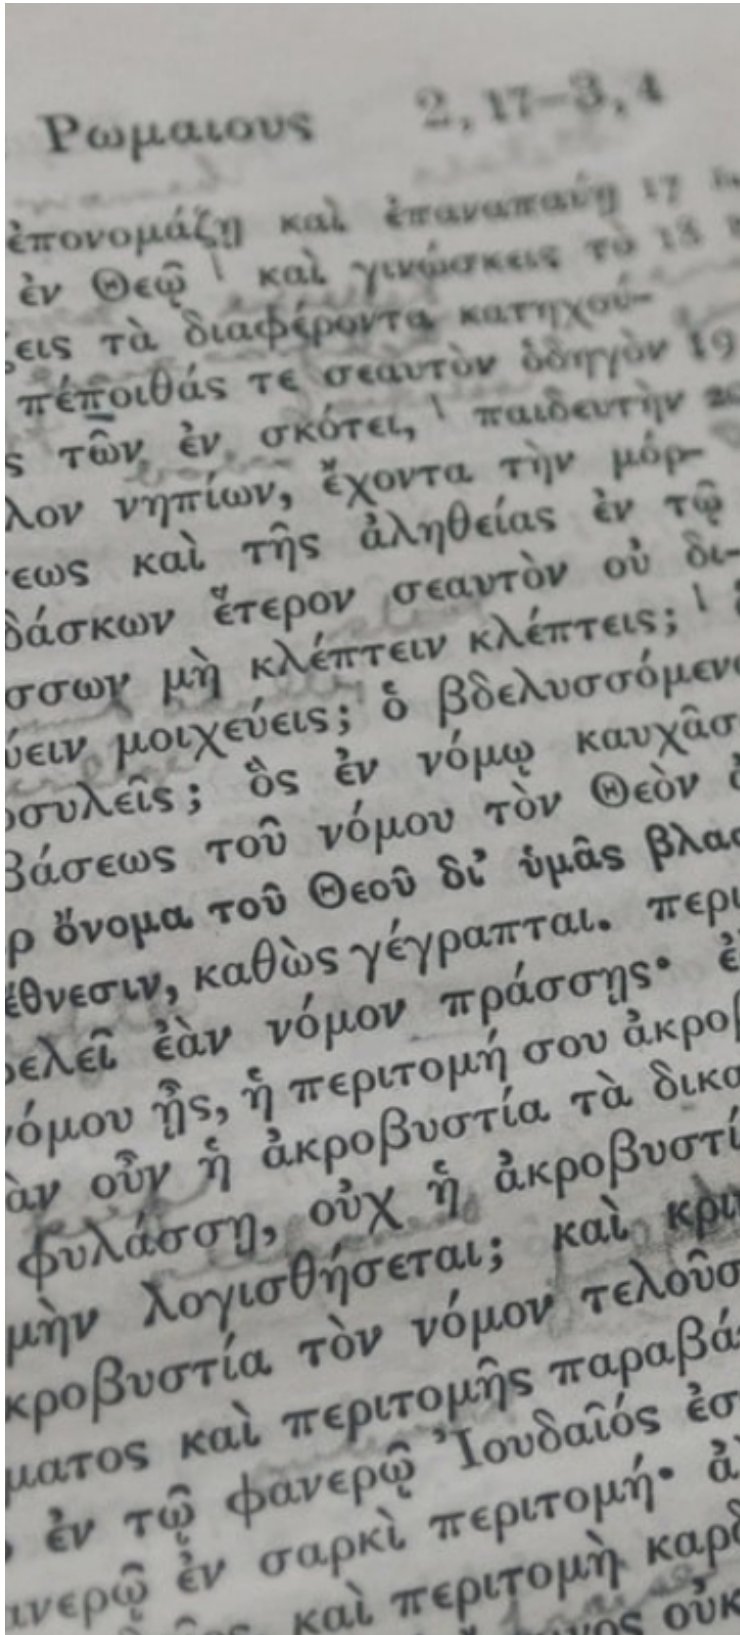 Ρωμαιους 2, 17–3, 4
ἐπονομάζῃ καὶ ἐπαναπαύῃ 17
ἐν Θεῷ ˡ καὶ γινώσκεις τὸ 18
ζεις τὰ διαφέροντα κατηχού-
πέποιθάς τε σεαυτὸν ὁδηγὸν 19
ς τῶν ἐν σκότει, ˡ παιδευτὴν 20
λον νηπίων, ἔχοντα τὴν μόρ-
εως καὶ τῆς ἀληθείας ἐν τῷ
δάσκων ἕτερον σεαυτὸν οὐ δι-
σσων μὴ κλέπτειν κλέπτεις; ˡ
ύειν μοιχεύεις; ὁ βδελυσσόμενο
οσυλεῖς; ὃς ἐν νόμῳ καυχᾶσ
βάσεως τοῦ νόμου τὸν Θεὸν ἀ
ρ ὄνομα τοῦ Θεοῦ δι’ ὑμᾶς βλασ
ἔθνεσιν, καθὼς γέγραπται. περι
ελεῖ ἐὰν νόμον πράσσῃς· ἐ
νόμου ᾖς, ἡ περιτομή σου ἀκροβ
ὰν οὖν ἡ ἀκροβυστία τὰ δικα
φυλάσσῃ, οὐχ ἡ ἀκροβυστί
μὴν λογισθήσεται; καὶ κριν
κροβυστία τὸν νόμον τελοῦσ
μματος καὶ περιτομῆς παραβά
ἐν τῷ φανερῷ Ἰουδαῖός ἐσ
ανερῷ ἐν σαρκὶ περιτομή· ἀ
καὶ περιτομὴ καρδ
οὐκ